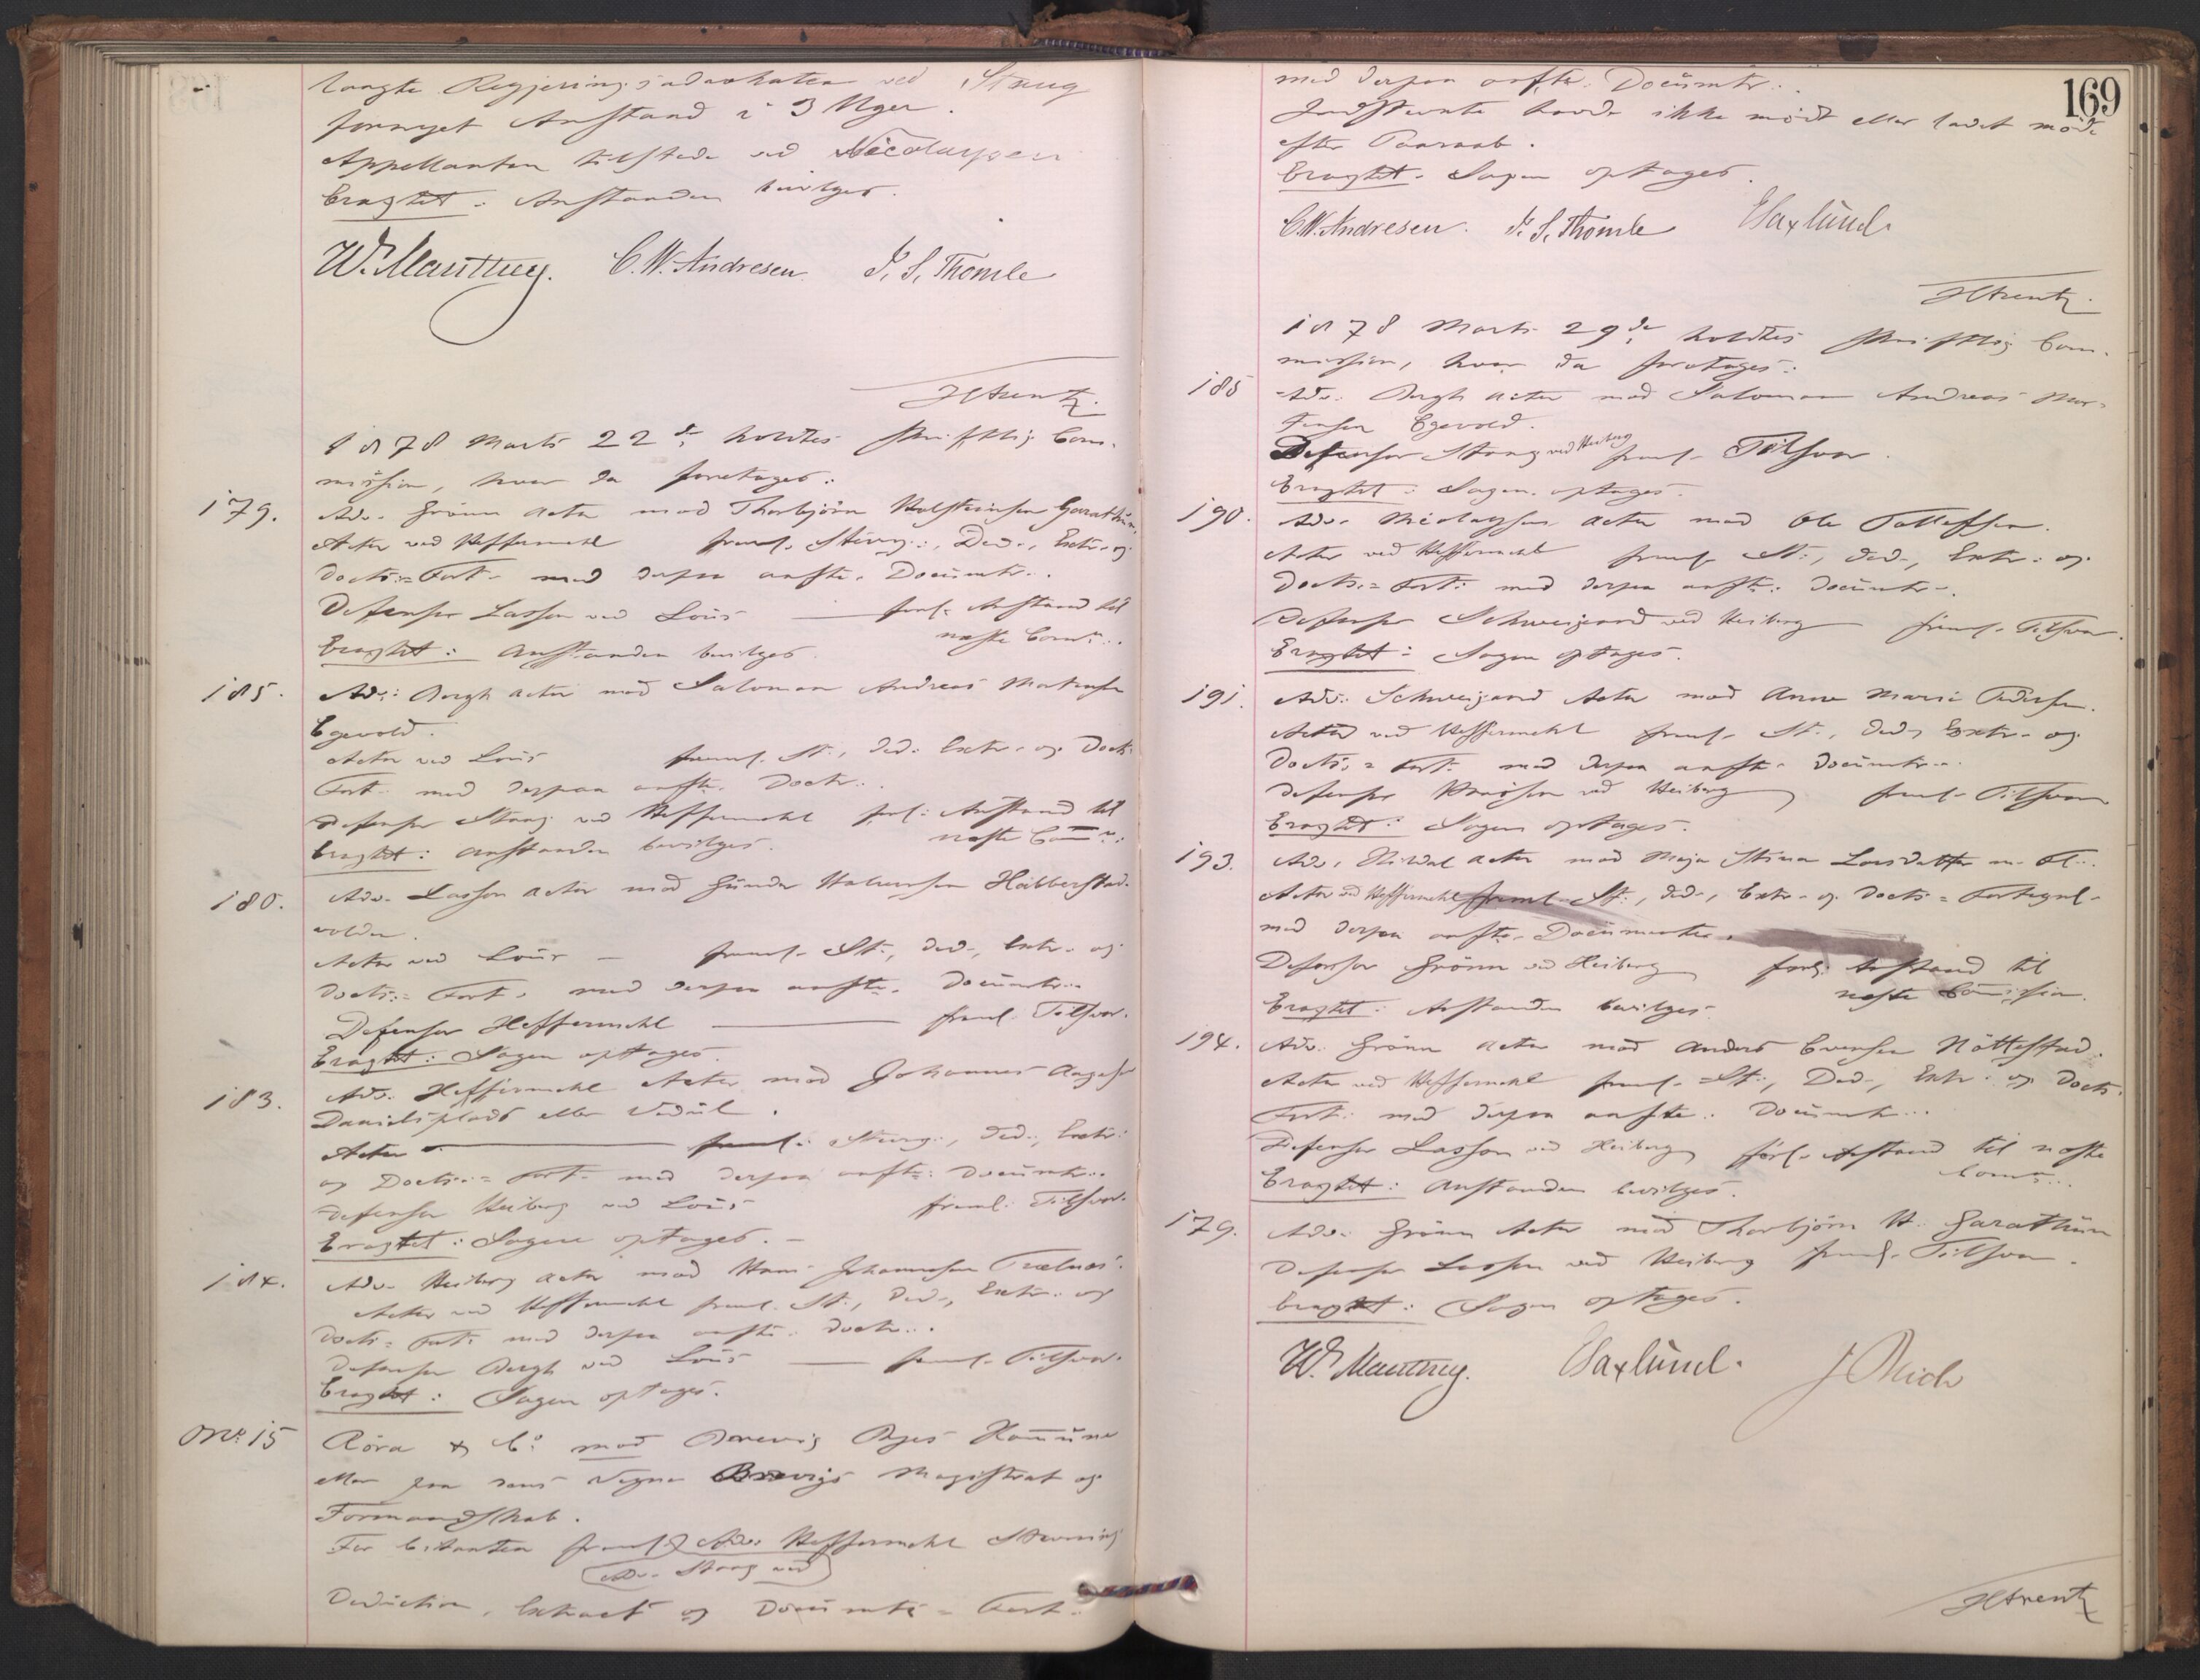 langte Regjeringsadvokaten ved Strug
fornyet Anstand i 3 Uger.
Appellanten tilstede ved Nicolaysen
Eragtet: Anstanden bevilges.
W. Manthey. C. W. Andresen J. S. Thomle
HArentz.
1878 Marts 22de holdtes skriftlig Com-
mission, hvor da foretages:
179. Adv. Grönn Actor mod Thorbjörn Holsteinsen Garathun,
Actor ved Heffermehl freml. Stevng:, Ded., Extr. og
Docts.= Fort. med derpaa anfte. Documtr..
Defensor Lasson ved Lous — forl. Anstand til
næste Comn..
Eragtet: Anstanden bevilges.
185. Adv: Bergh Actor mod Salomon Andreas Mortensen
Egevold.
Actor ved Lous freml. St:, Ded: Extr. og Docts:
Fort. med derpaa anfte. Doctr..
Defensor Stang ved Heffermehl forl: Anstand til
næste Comn:
Eragtet: Anstanden bevilges.
180. Adv. Lasson Actor mod Gunder Halvorsen Habberstad-
volden.
Actor ved Lous — freml. St:, Ded., Extr. og
Docts:= Fort. med derpaa anfte. Documtr..
Defensor Heffermehl — freml. Tilsvar.
Eragtet: Sagen optages.
183. Adv. Heffermehl Actor mod Johannes Aagesen
Danielsplads eller Vedul.
Actor — freml: Stevng:, Ded:, Extr:
og Docts:= Fort. med derpaa anfte: Documtr..
Defensor Heiberg ved Lous freml. Tilsvar.
Eragtet: Sagen optages. —
184. Adv. Heiberg Actor mod Hans Johannesen Trælnæs.
Actor ved Heffermehl freml. St:, Ded., Extr. og
Docts.= Fort. med derpaa anfte. Doctr...
Defensor Bergh ved Lous — freml. Tilsvar.
Eragtet: Sagen optages.
No. 15 Röra & Co. mod Brevig Byes Kommune
eller paa dens Vegne Brevigs Magistrat og
Formandskab.
For Citanten freml. Adv: Heffermehl Stevning
(Adv. Stang ved)
Deduction, Extract og Documts = Fort.
169
med derpaa anfte. Documtr..
Indstevnte havde ikke mödt eller ladet möde
efter Paaraab.
Eragtet. Sagen optages.
C. W. Andresen. J. S. Thomle ESaxlund.
HArentz.
1878 Marts 29de holdtes skriftlig Com-
mission, hvor da foretages:
185 Adv. Bergh Actor mod Salomon Andreas Mor-
tensen Egevold.
Defensor Stang ved Heiberg freml. Tilsvar.
Eragtet: Sagen optages.
190. Adv. Nicolaysen Actor mod Ole Tollefsen.
Actor ved Heffermehl freml. St:, Ded., Extr: og
Docts:= Fort: med derpaa anfte: Documtr..
Defensor Schweigaard ved Heiberg freml. Tilsvar.
Eragtet: Sagen optages.
191. Adv: Schweigaard Actor mod Anne Marie Pedersen.
Actor ved Heffermehl freml. St:, Ded., Extr. og
Docts:= Fort. med derpaa anfte. Documtr..
Defensor ved Heiberg freml. Tilsvar
Eragtet: Sagen optages.
193. Adv. Actor mod Maja Stina Larsdatter m. Fl..
Actor ved Heffermehl freml. St:, Ded., Extr. og Docts:= Fortegnl.
med derpaa anfte. Documenter.
Defensor Grönn ved Heiberg forl: Anstand til
næste Comission.
Eragtet: Anstanden bevilges.
194. Adv. Grönn Actor mod Anders Evensen Nöttestad.
Actor ved Heffermehl freml. St:, Ded., Extr. og Docts.
Fort: med derpaa anfte.. Documtr...
Defensor Lasson ved Heiberg forl. Anstand til næste
Comn...
Eragtet: Anstanden bevilges.
179. Adv. Grönn Actor mod Thorbjörn H. Garathun
Defensor Lasson ved Heiberg freml. Tilsvar.
Eragtet: Sagen optages.
W. Manthey. ESaxlund.
HArentz